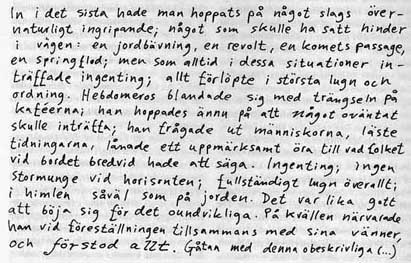 In i det sista hade man hoppats på något slags över-
naturligt ingripande; något som skulle ha satt hinder
i vägen: en jordbävning, en revolt, en komets passage,
en springflod; men som alltid i dessa situationer in-
träffade ingenting; allt förlöpte i största lugn och
ordning. Hebdomeros blandade sig med trängseln på
kaféerna; han hoppades ännu på att något oväntat
skulle inträffa; han frågade ut människorna, läste
tidningarna, lånade ett uppmärksamt öra till vad folket
vid bordet bredvid hade att säga. Ingenting; ingen
stormunge vid horisonten; fullständigt lugn överallt;
i himlen såväl som på jorden. Det var lika gott
att böja sig för det oundvikliga. På kvällen närvarade
han vid föreställningen tillsammans med sina vänner,
och förstod allt. Gåtan med denna obeskrivliga (...)